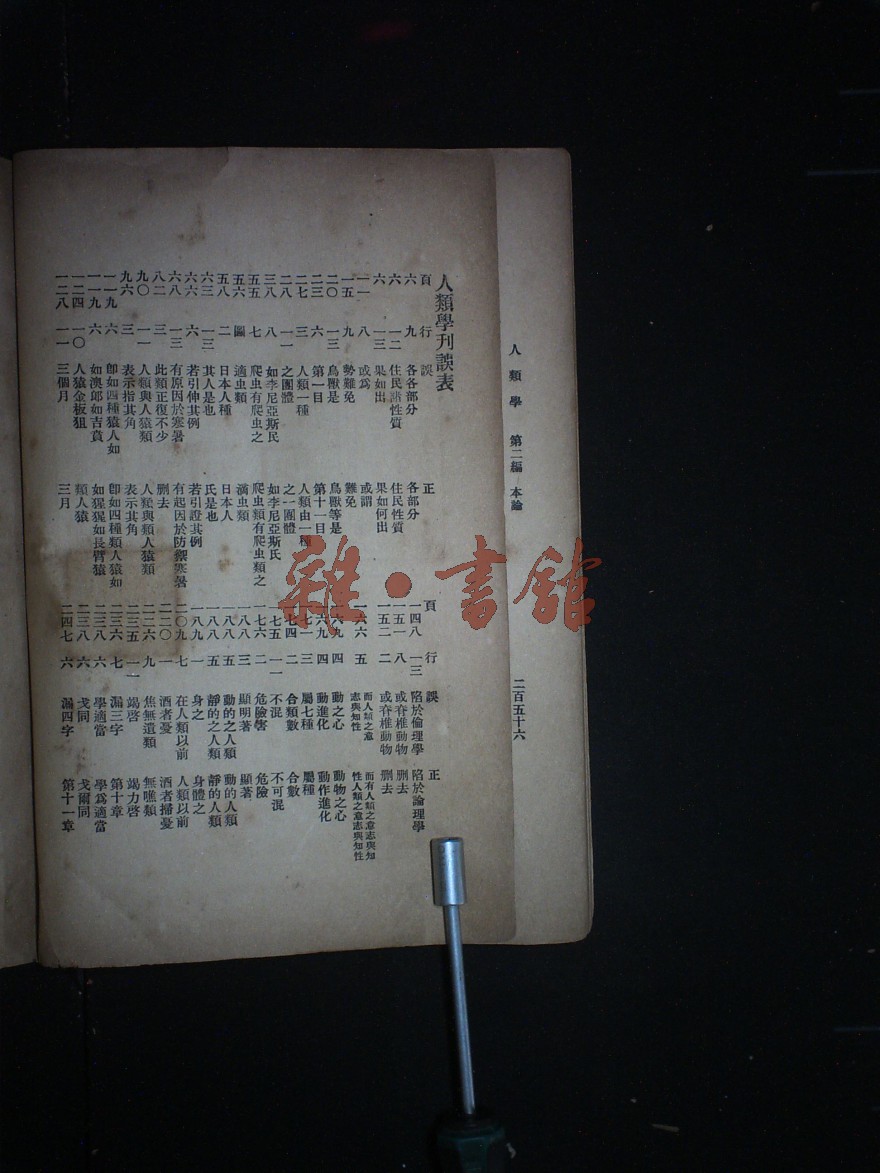 人類學 第二編 本論 二百五十六
人類學刊誤表
頁 行 誤 正 頁 行 誤 正
六 九 各各部分 各部分 一四八 一三 陷於倫理學 陷於論理學
六 一二 住民諸性質 住民性質 一五一 八 或脊椎動物 删去
六 一三 果如出 果如何出 一五二 二 或脊椎動物 删去
一一 八 或爲 或謂 一六六 五 而人類之意志與知性 而有人類之意志與知性人類之意志與知性
一五 九 勢難免 難免
二〇 三 鳥獸是 鳥獸等是 一六九 四 動之心 動物之心
二三 六 第一目 第十一目 一六九 四 動進化 動作進化
二七 三 人類一種 人類由一種 一七一 三 屬七種 屬種
二八 一一 之團體 之一團體 一七四 二 合類數 合數
三八 八 如李尼亞斯民 如李尼亞斯氏 一七五 一一 不混 不可混
五五 七 爬虫有爬虫之 爬虫類有爬虫類之 一七六 二 危險害 危險
五六 圖 適虫類 滴虫類 一八八 三 顯明著 顯著
五八 二 日本人種 日本人 一八八 五 動的之人類 動的人類
六三 一三 其人是也 氏是也 一八八 五 靜的之人類 靜的人類
六六 六 若引伸其例 若引證其例 一八九 一 身之 身體之
六八 一三 有原因於寒暑 有起因於防禦寒暑 二〇九 七 在人類以前 人類以前
八二 三 此類正復不少 删去 二二〇 一 酒者憂 酒者掃憂
九〇 一一 人類與人猿類 人類與類人猿類 二二六 九 焦無遺類 無噍類
九六 三 表示指其角 表示其角 二三五 一一 竭啓 竭力啓
一一九 六 卽如四種猿人如 卽如四種類人猿如 二三六 七 漏三字 第十章
一一九 六 如澳郎如吉賁 如猩猩如長臂猿 二三八 六 學適當 學爲適當
一二四 一〇 人猿金板狙 類人猿 二三八 六 戈同 戈爾同
一二八 一一 三個月 三月 二四七 六 漏四字 第十一章
雜·書館